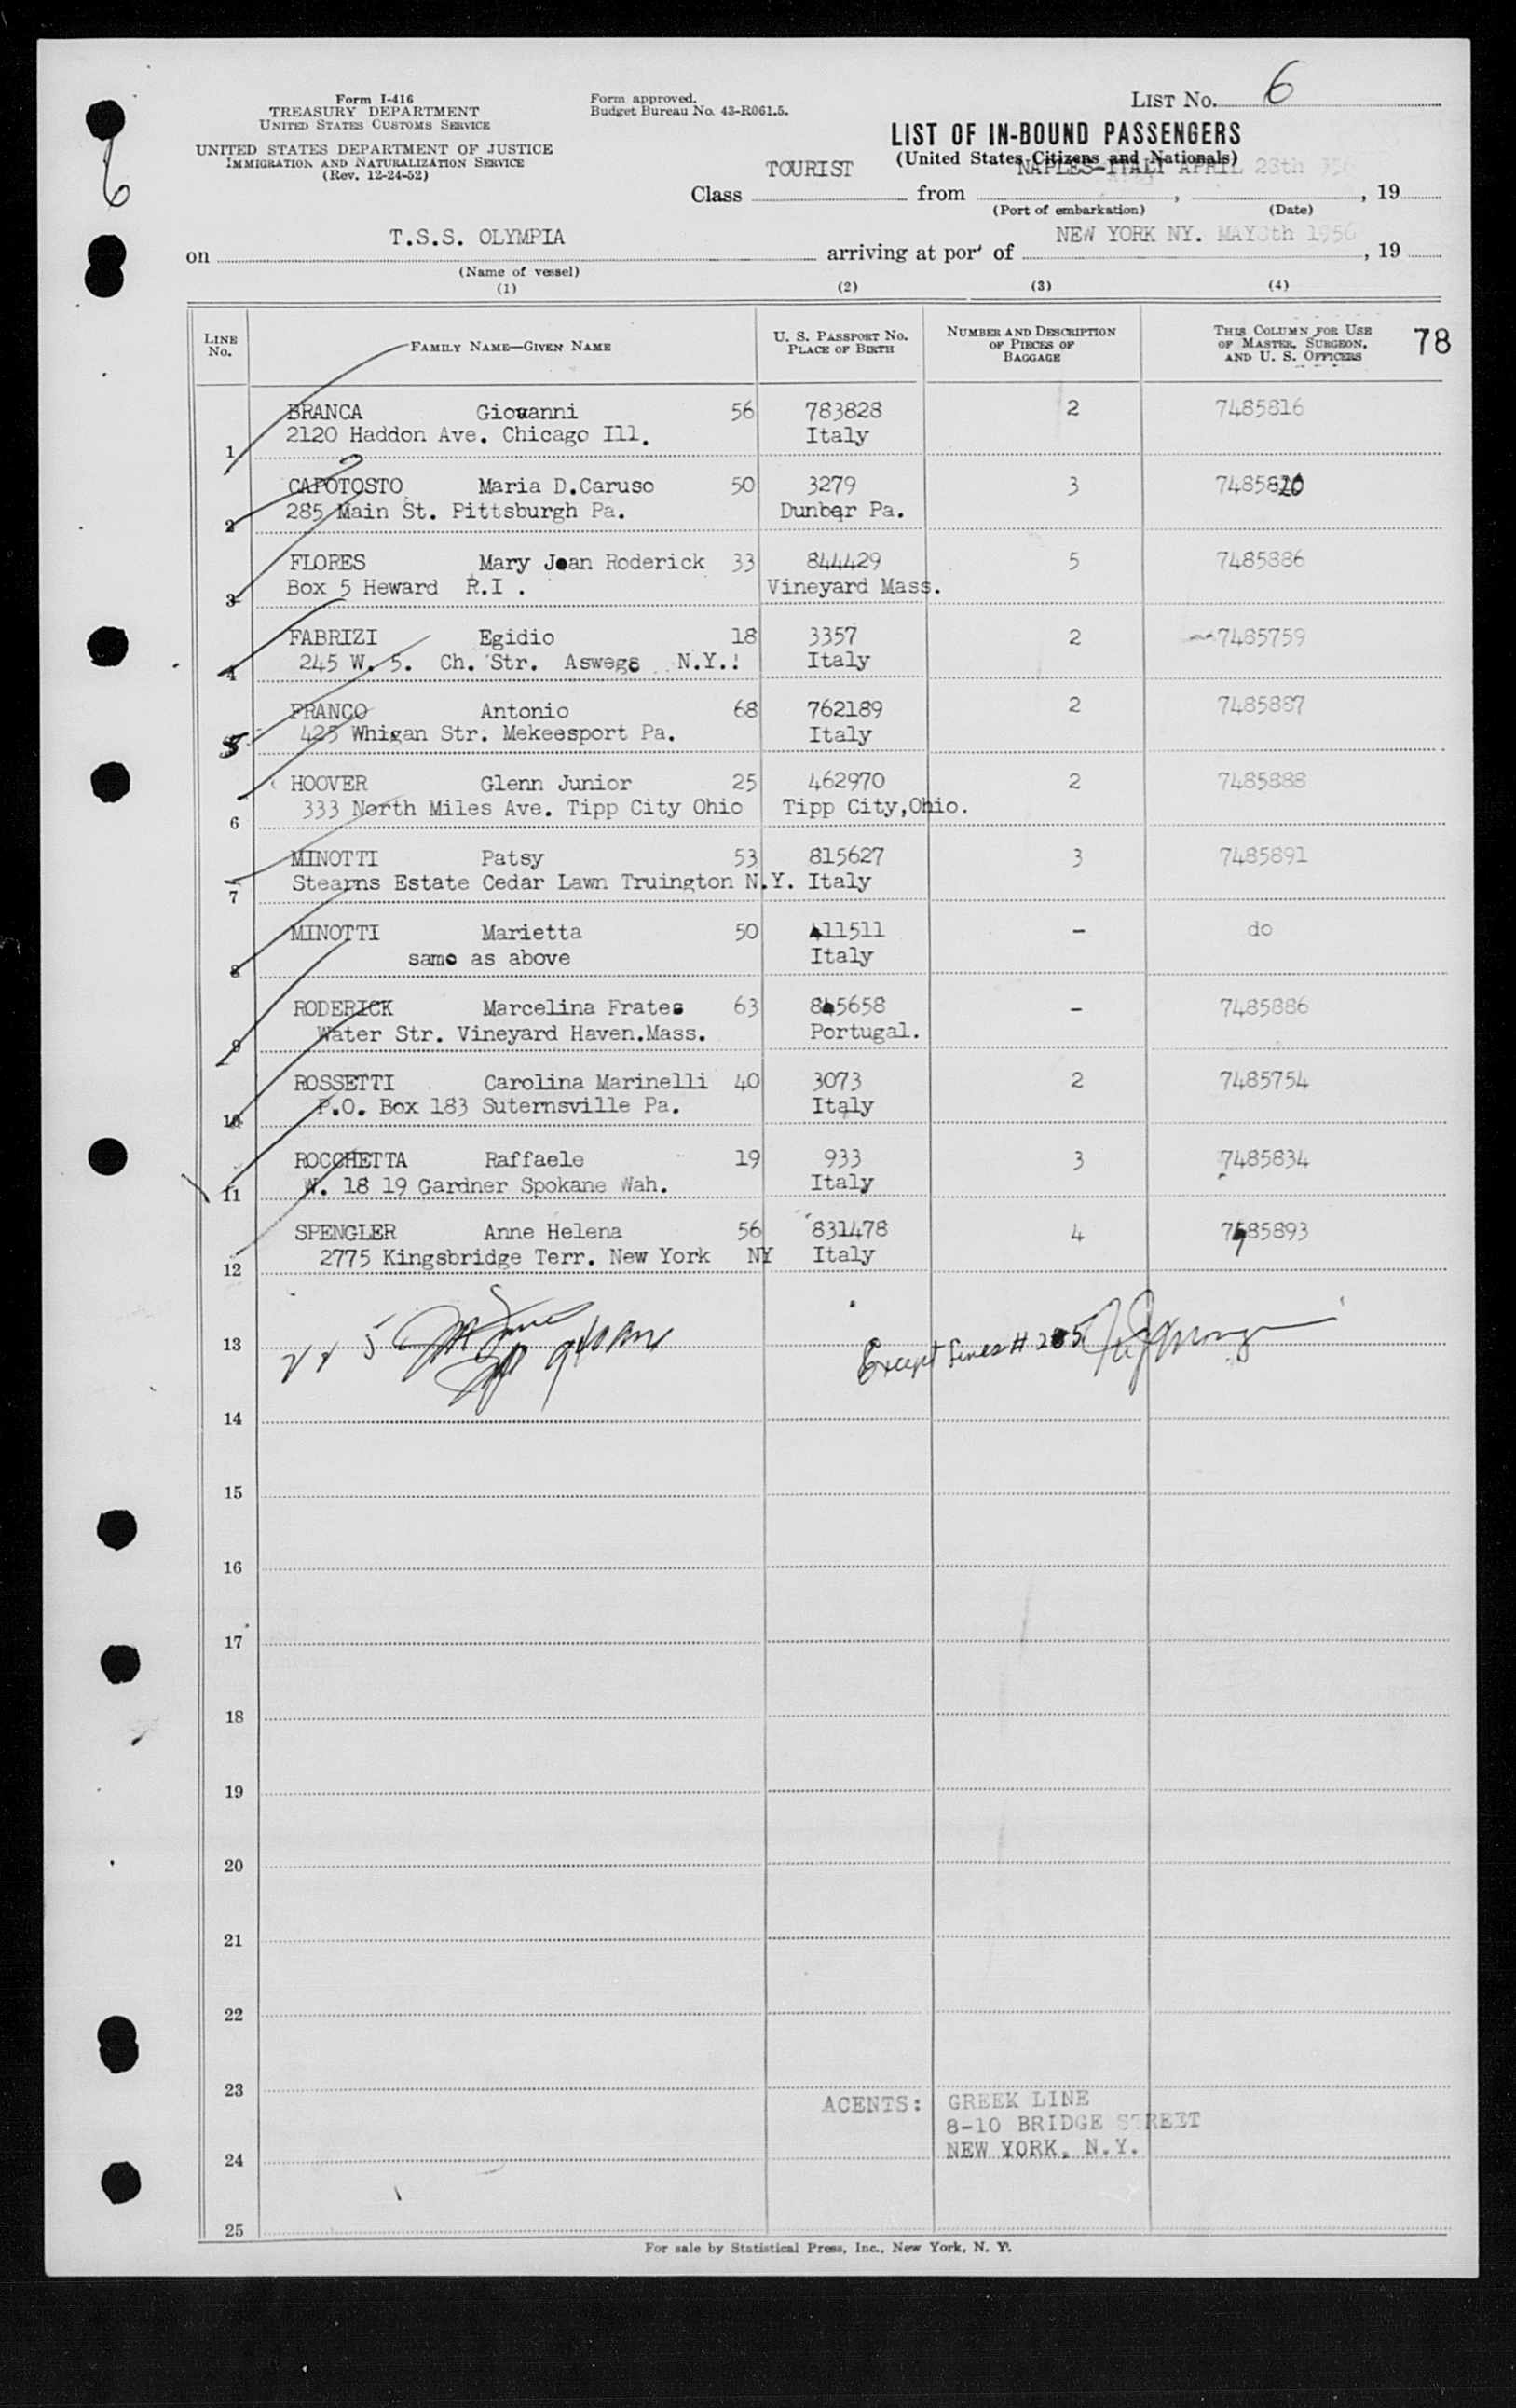 Form I-416
TREASURY DEPARTMENT
UNITED STATES CUSTOMS SERVICE
UNITED STATES DEPARTMENT OF JUSTICE
IMMIGRATION AND NATURALIZATION SERVICE
(Rev. 12-24-52)
Form approved.
Budget Bureau No. 43-R061.5.
LIST NO. 6
6
LIST OF IN-BOUND PASSENGERS
(United States Citizens and Nationals)
Class TOURIST from NAPLES-ITALY APRIL 28th, 19
(Port of embarkation) (Date)
on T.S.S. OLYMPIA arriving at port of NEW YORK NY. MAY 1956, 19
(Name of vessel)
(1) (2) (3) (4)
LINE NO. FAMILY NAME—GIVEN NAME U. S. PASSPORT NO. PLACE OF BIRTH NUMBER AND DESCRIPTION OF PIECES OF BAGGAGE THIS COLUMN FOR USE OF MASTER, SURGEON, AND U. S. OFFICERS 78
BRANCA Giovanni 56 783828 2 7485816
1 2120 Haddon Ave. Chicago Ill. Italy
CAPOTOSTO Maria D.Caruso 50 3279 3 7485820
2 285 Main St. Pittsburgh Pa. Dunbar Pa.
FLORES Mary Jean Roderick 33 844429 5 7485886
3 Box 5 Heward R.I . Vineyard Mass.
FABRIZI Egidio 18 3357 2 7485759
4 245 W. 5. Ch. Str. Aswego N.Y. Italy
FRANCO Antonio 68 762189 2 7485887
5 425 Whigan Str. Mekeesport Pa. Italy
HOOVER Glenn Junior 25 462970 2 7485888
6 333 North Miles Ave. Tipp City Ohio Tipp City,Ohio.
MINOTTI Patsy 53 815627 3 7485891
7 Stearns Estate Cedar Lawn Truington N.Y. Italy
MINOTTI Marietta 50 411511 - do
8 same as above Italy
RODERICK Marcelina Frates 63 845658 - 7485886
9 Water Str. Vineyard Haven.Mass. Portugal.
ROSSETTI Carolina Marinelli 40 3073 2 7485754
10 P.O. Box 183 Suternsville Pa. Italy
ROCCHETTA Raffaele 19 933 3 7485834
11 W. 18 19 Gardner Spokane Wah. Italy
SPENGLER Anne Helena 56 831478 4 7485893
12 2775 Kingsbridge Terr. New York NY Italy
13 Except Lines #
14
15
16
17
18
19
20
21
22
23
ACENTS: GREEK LINE
8-10 BRIDGE STREET
24 NEW YORK, N.Y.
25
For sale by Statistical Press, Inc., New York, N. Y.